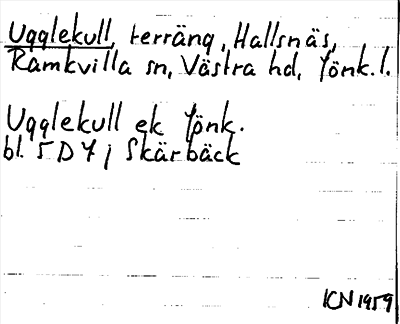 Ugglekull, terräng, Hallsnäs,
Ramkvilla sn, Västra hd, Jönk. l.
Ugglekull ek Jönk.
bl. 5 D 7 j Skärbäck
KN 1959